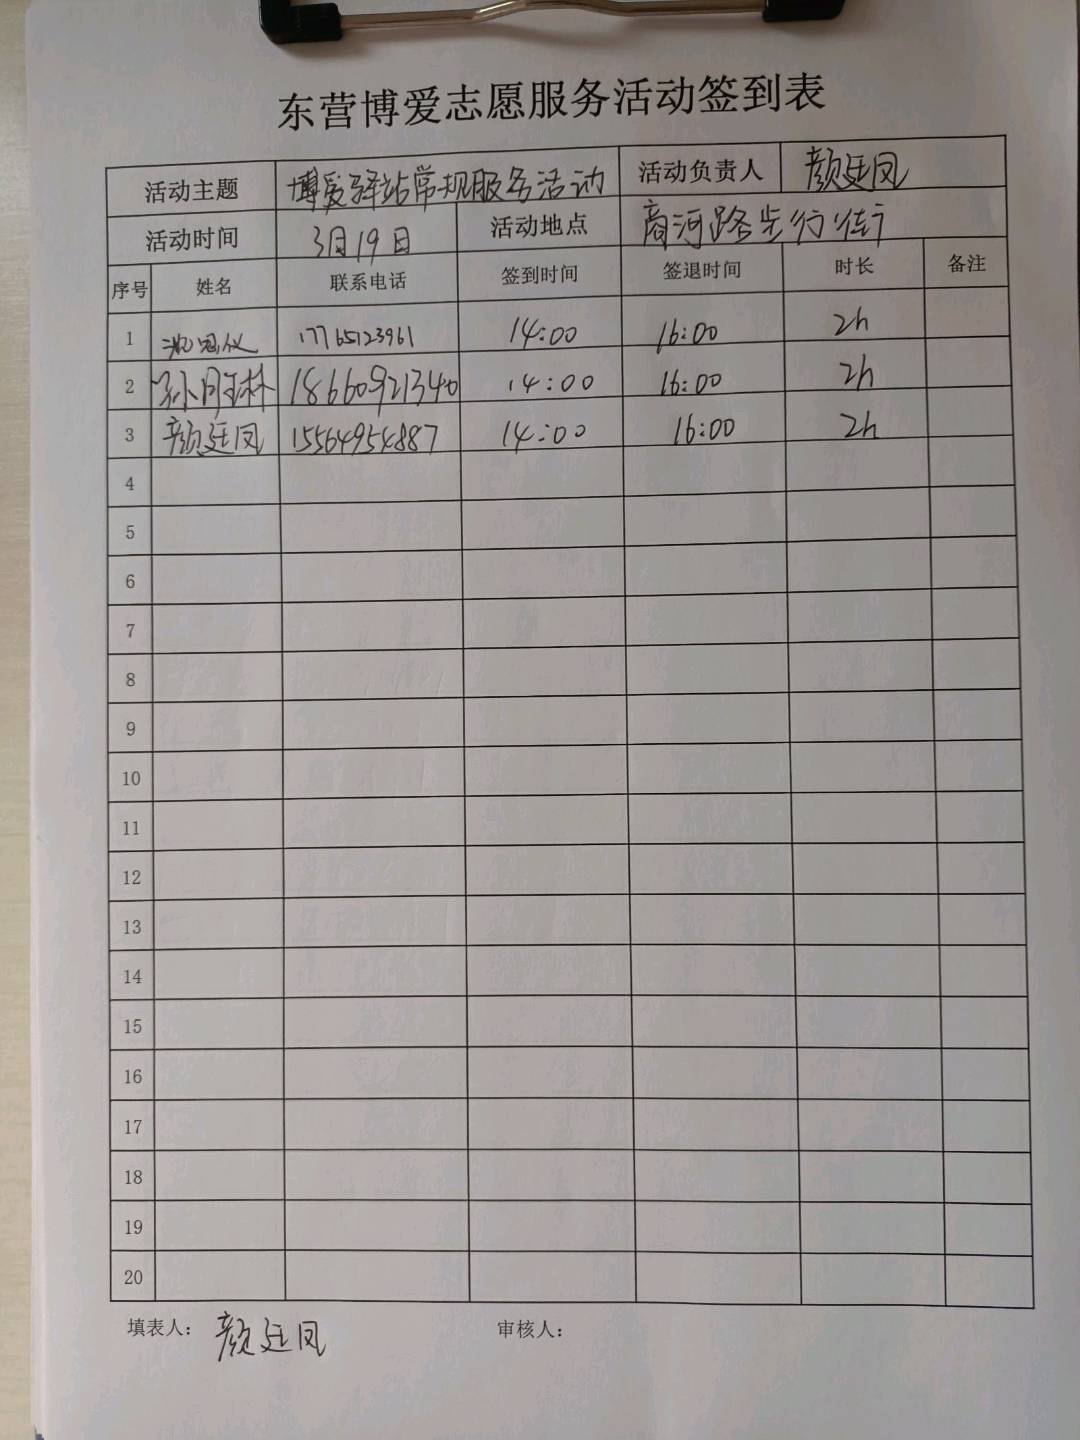 东营博爱志愿服务活动签到表
活动主题 博爱驿站常规服务活动 活动负责人 颜廷凤
活动时间 3月19日 活动地点 商河路步行街
序号 姓名 联系电话 签到时间 签退时间 时长 备注
1 17765123961 14:00 16:00 2h
2 18660921340 14:00 16:00 2h
3 颜廷凤 15564954887 14:00 16:00 2h
4
5
6
7
8
9
10
11
12
13
14
15
16
17
18
19
20
填表人: 颜廷凤 审核人: